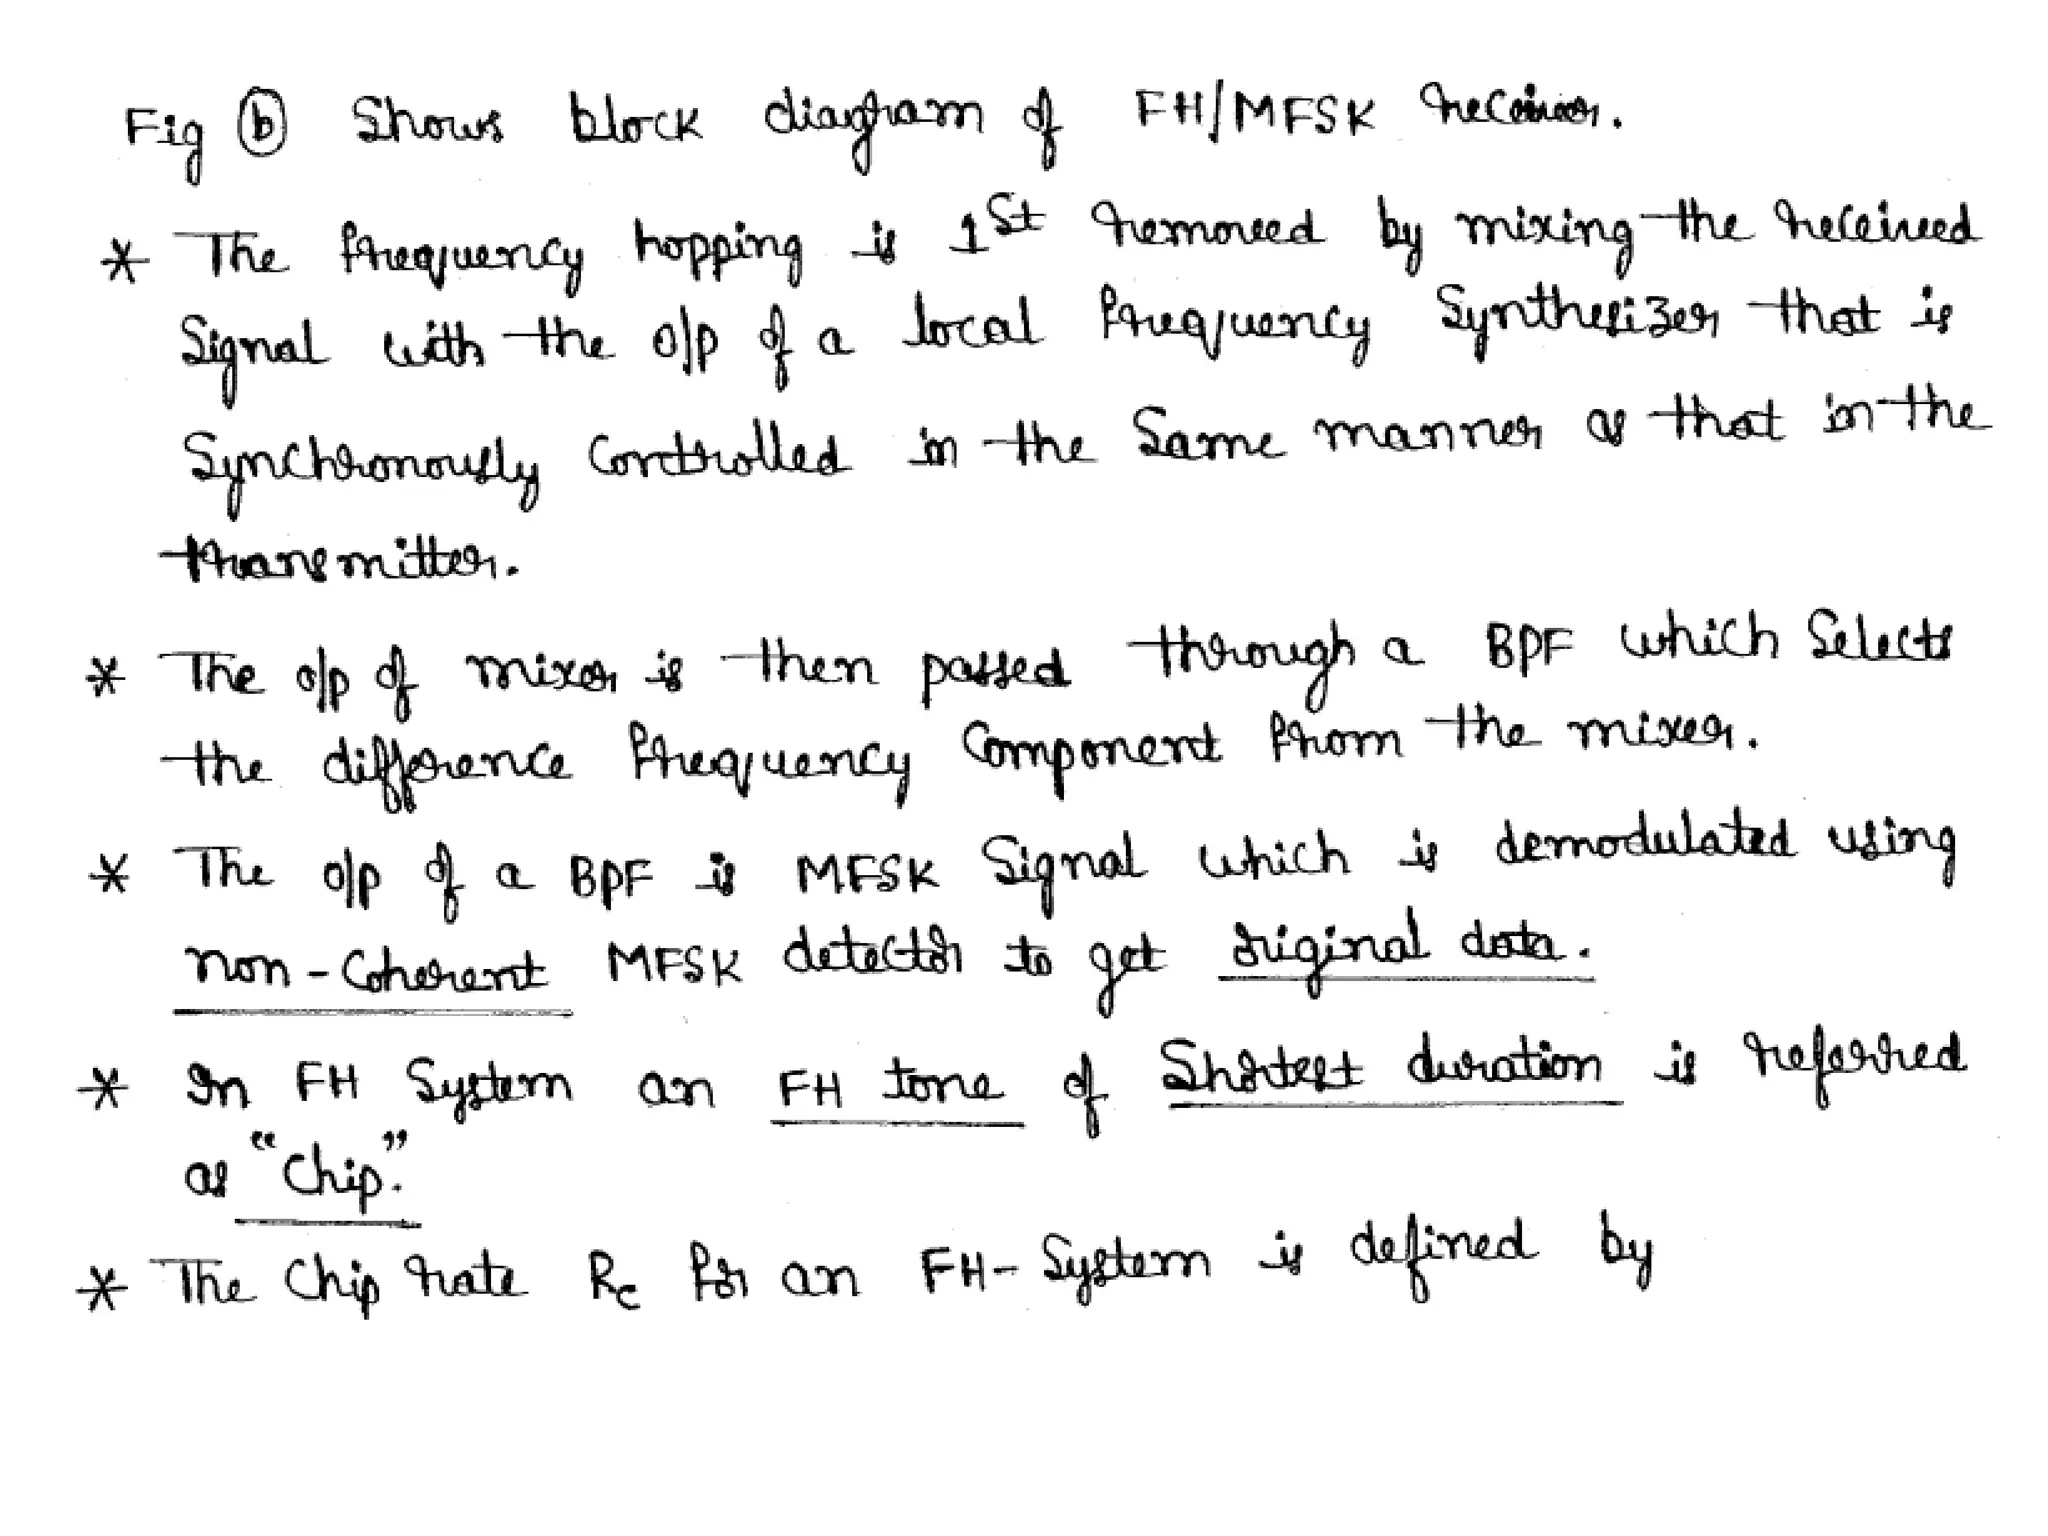 Fig ⓑ Shows block diagram of FH/MFSK receiver.
* The frequency hopping is 1st removed by mixing the received
Signal with the o/p of a local frequency Synthesizer that is
Synchronously Controlled in the Same manner as that in the
transmitter.
* The o/p of mixer is then passed through a BPF which Selects
the difference frequency Component from the mixer.
* The o/p of a BPF is MFSK Signal which is demodulated using
non-Coherent MFSK detector to get original data.
* In FH System an FH tone of Shortest duration is referred
as "Chip".
* The Chip rate Rc for an FH-System is defined by